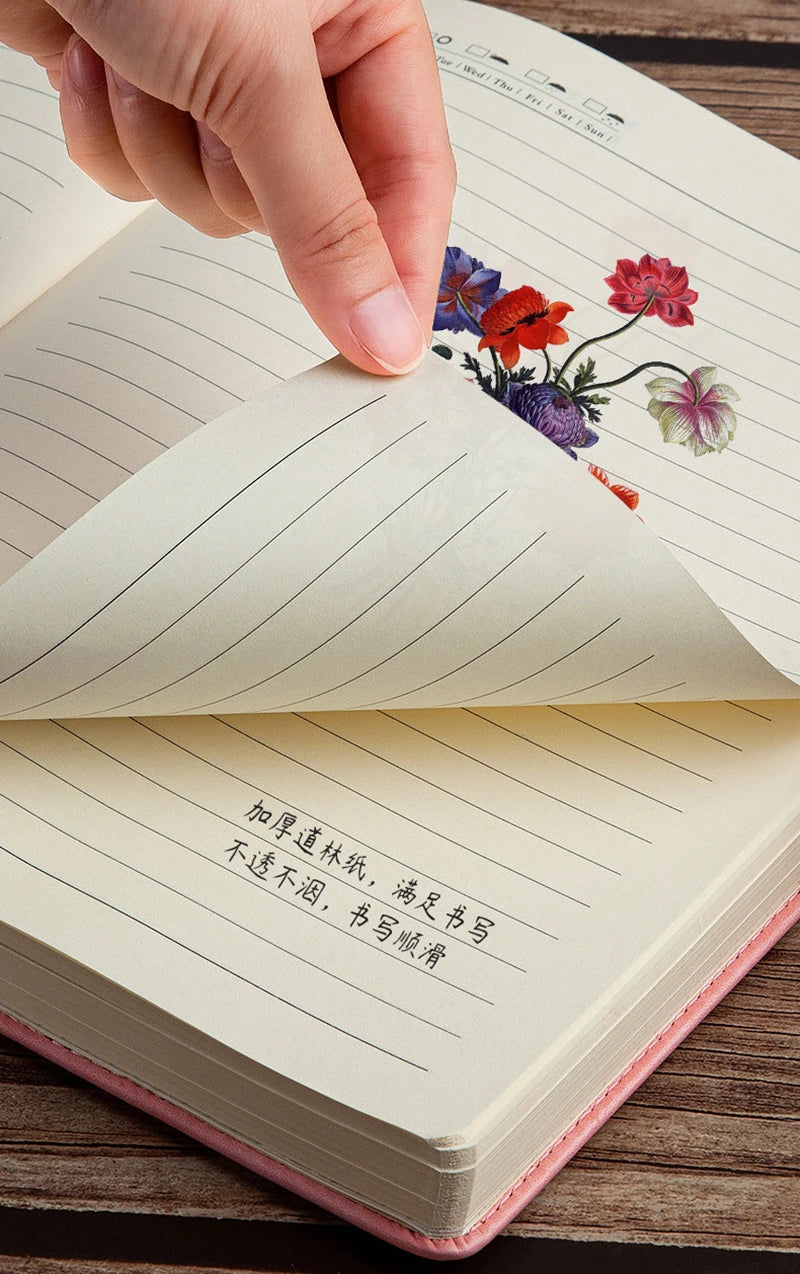 Tue | Wed | Thu | Fri | Sat | Sun |
加厚道林纸，满足书写
不透不洇，书写顺滑